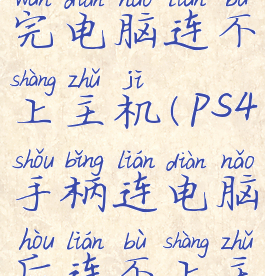 wán diàn nǎo lián bù
完电脑连不
shàng zhǔ jī
上主机(PS4
shǒu bǐng lián diàn nǎo
手柄连电脑
hòu lián bù shàng zhǔ
后连不上主